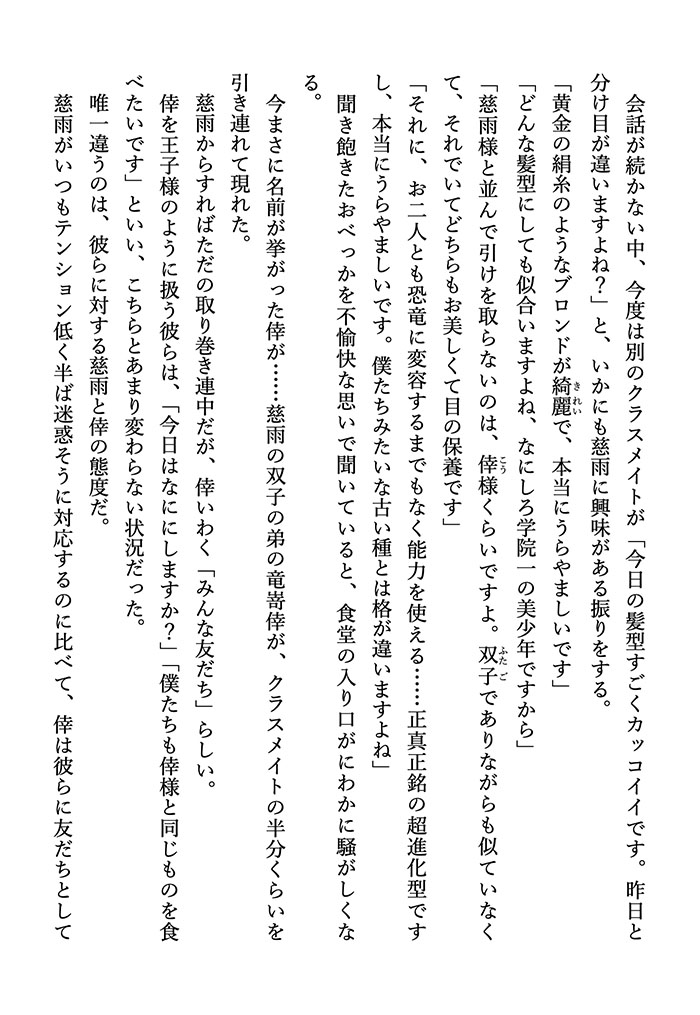 会話が続かない中、今度は別のクラスメイトが「今日の髪型すごくカッコイイです。昨日と
分け目が違いますよね？」と、いかにも慈雨に興味がある振りをする。
「黄金の絹糸のようなブロンドが綺麗きれいで、本当にうらやましいです」
「どんな髪型にしても似合いますよね、なにしろ学院一の美少年ですから」
「慈雨様と並んで引けを取らないのは、倖こう様くらいですよ。双子ふたごでありながらも似ていなく
て、それでいてどちらもお美しくて目の保養です」
「それに、お二人とも恐竜に変容するまでもなく能力を使える……正真正銘の超進化型です
し、本当にうらやましいです。僕たちみたいな古い種とは格が違いますよね」
聞き飽きたおべっかを不愉快な思いで聞いていると、食堂の入り口がにわかに騒がしくな
る。
今まさに名前が挙がった倖が……慈雨の双子の弟の竜嵜倖が、クラスメイトの半分くらいを
引き連れて現れた。
慈雨からすればただの取り巻き連中だが、倖いわく「みんな友だち」らしい。
倖を王子様のように扱う彼らは、「今日はなににしますか？」「僕たちも倖様と同じものを食
べたいです」といい、こちらとあまり変わらない状況だった。
唯一違うのは、彼らに対する慈雨と倖の態度だ。
慈雨がいつもテンション低く半ば迷惑そうに対応するのに比べて、倖は彼らに友だちとして